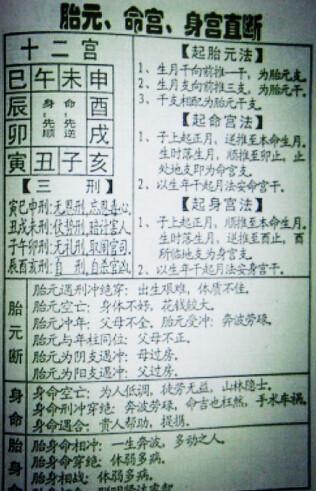 胎元、命宫、身宫直断
十二宫
巳午未申
辰 身:先顺 命:先逆 酉
卯 戌
寅丑子亥
【三 刑】
寅巳申刑:无恩刑,忘恩毒心。
丑戌未刑:仗势刑,暗计害人。
子午卯刑:无礼刑,取闹官司。
辰酉亥刑:自 刑,自杀官凶。
【起胎元法】
1、生月干向前推一干,为胎元支。
2、生月支向前推三支,为胎元干。
3、干支相配为胎元干支。
【起命宫法】
1、子上起正月,逆推至本命生月。
生时落生月,顺推至卯止,止
处地支即为命宫支。
2、以生年干起月法安命宫干。
【起身宫法】
1、子上起正月,顺推至本命生月。
生时落生月,逆推至酉止,酉
所临地支为身宫支。
2、以生年干起月法安身宫干。
胎元断
胎元遇刑冲绝穿:出生艰难,体质不佳。
胎元空亡:身体不好,花钱较大。
胎元冲年:父母不全。胎元受冲:奔波劳碌。
胎元与年柱同位:父母不正。
胎元为阴支遇冲:母过房。
胎元为阳支遇冲:父过房。
身命
身命空亡:为人低调,徒劳无益,山林隐士。
身命刑冲穿绝:奔波劳碌,命吉也枉然,手术车祸。
身命遇合:贵人帮助,提携。
胎身命
胎身命相冲:一生奔波,多动之人。
胎身命穿绝:体弱多病。
胎身相战:体弱多病。